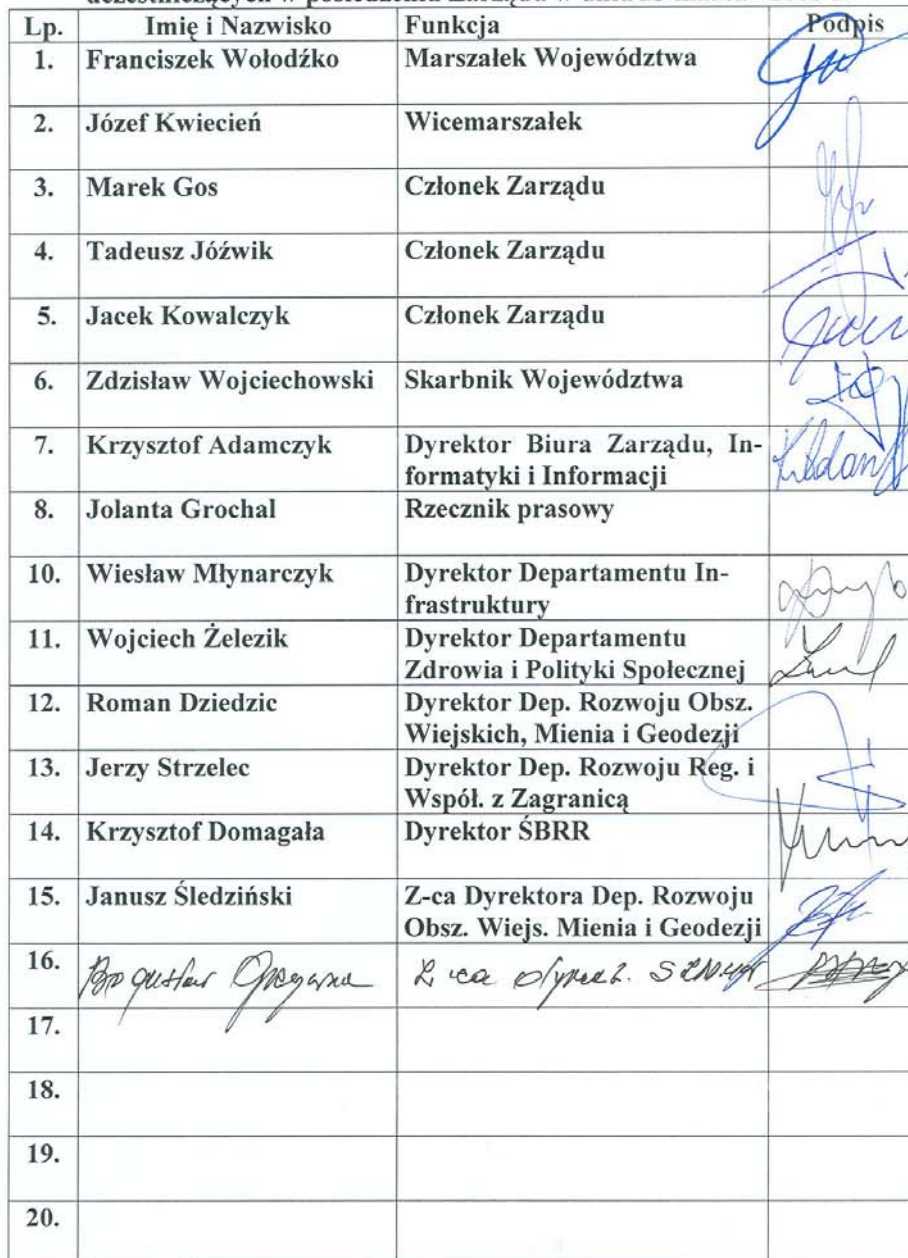 uczestniczących w posiedzeniu Zarządu w dniu
Lp. Imię i Nazwisko Funkcja Podpis
1. Franciszek Wołodźko Marszałek Województwa
2. Józef Kwiecień Wicemarszałek
3. Marek Gos Członek Zarządu
4. Tadeusz Jóźwik Członek Zarządu
5. Jacek Kowalczyk Członek Zarządu
6. Zdzisław Wojciechowski Skarbnik Województwa
7. Krzysztof Adamczyk Dyrektor Biura Zarządu, In-
formatyki i Informacji
8. Jolanta Grochal Rzecznik prasowy
10. Wiesław Młynarczyk Dyrektor Departamentu In-
frastruktury
11. Wojciech Żelezik Dyrektor Departamentu
Zdrowia i Polityki Społecznej
12. Roman Dziedzic Dyrektor Dep. Rozwoju Obsz.
Wiejskich, Mienia i Geodezji
13. Jerzy Strzelec Dyrektor Dep. Rozwoju Reg. i
Współ. z Zagranicą
14. Krzysztof Domagała Dyrektor ŚBRR
15. Janusz Śledziński Z-ca Dyrektora Dep. Rozwoju
Obsz. Wiejs. Mienia i Geodezji
16. Bogusław Z-ca
17.
18.
19.
20.